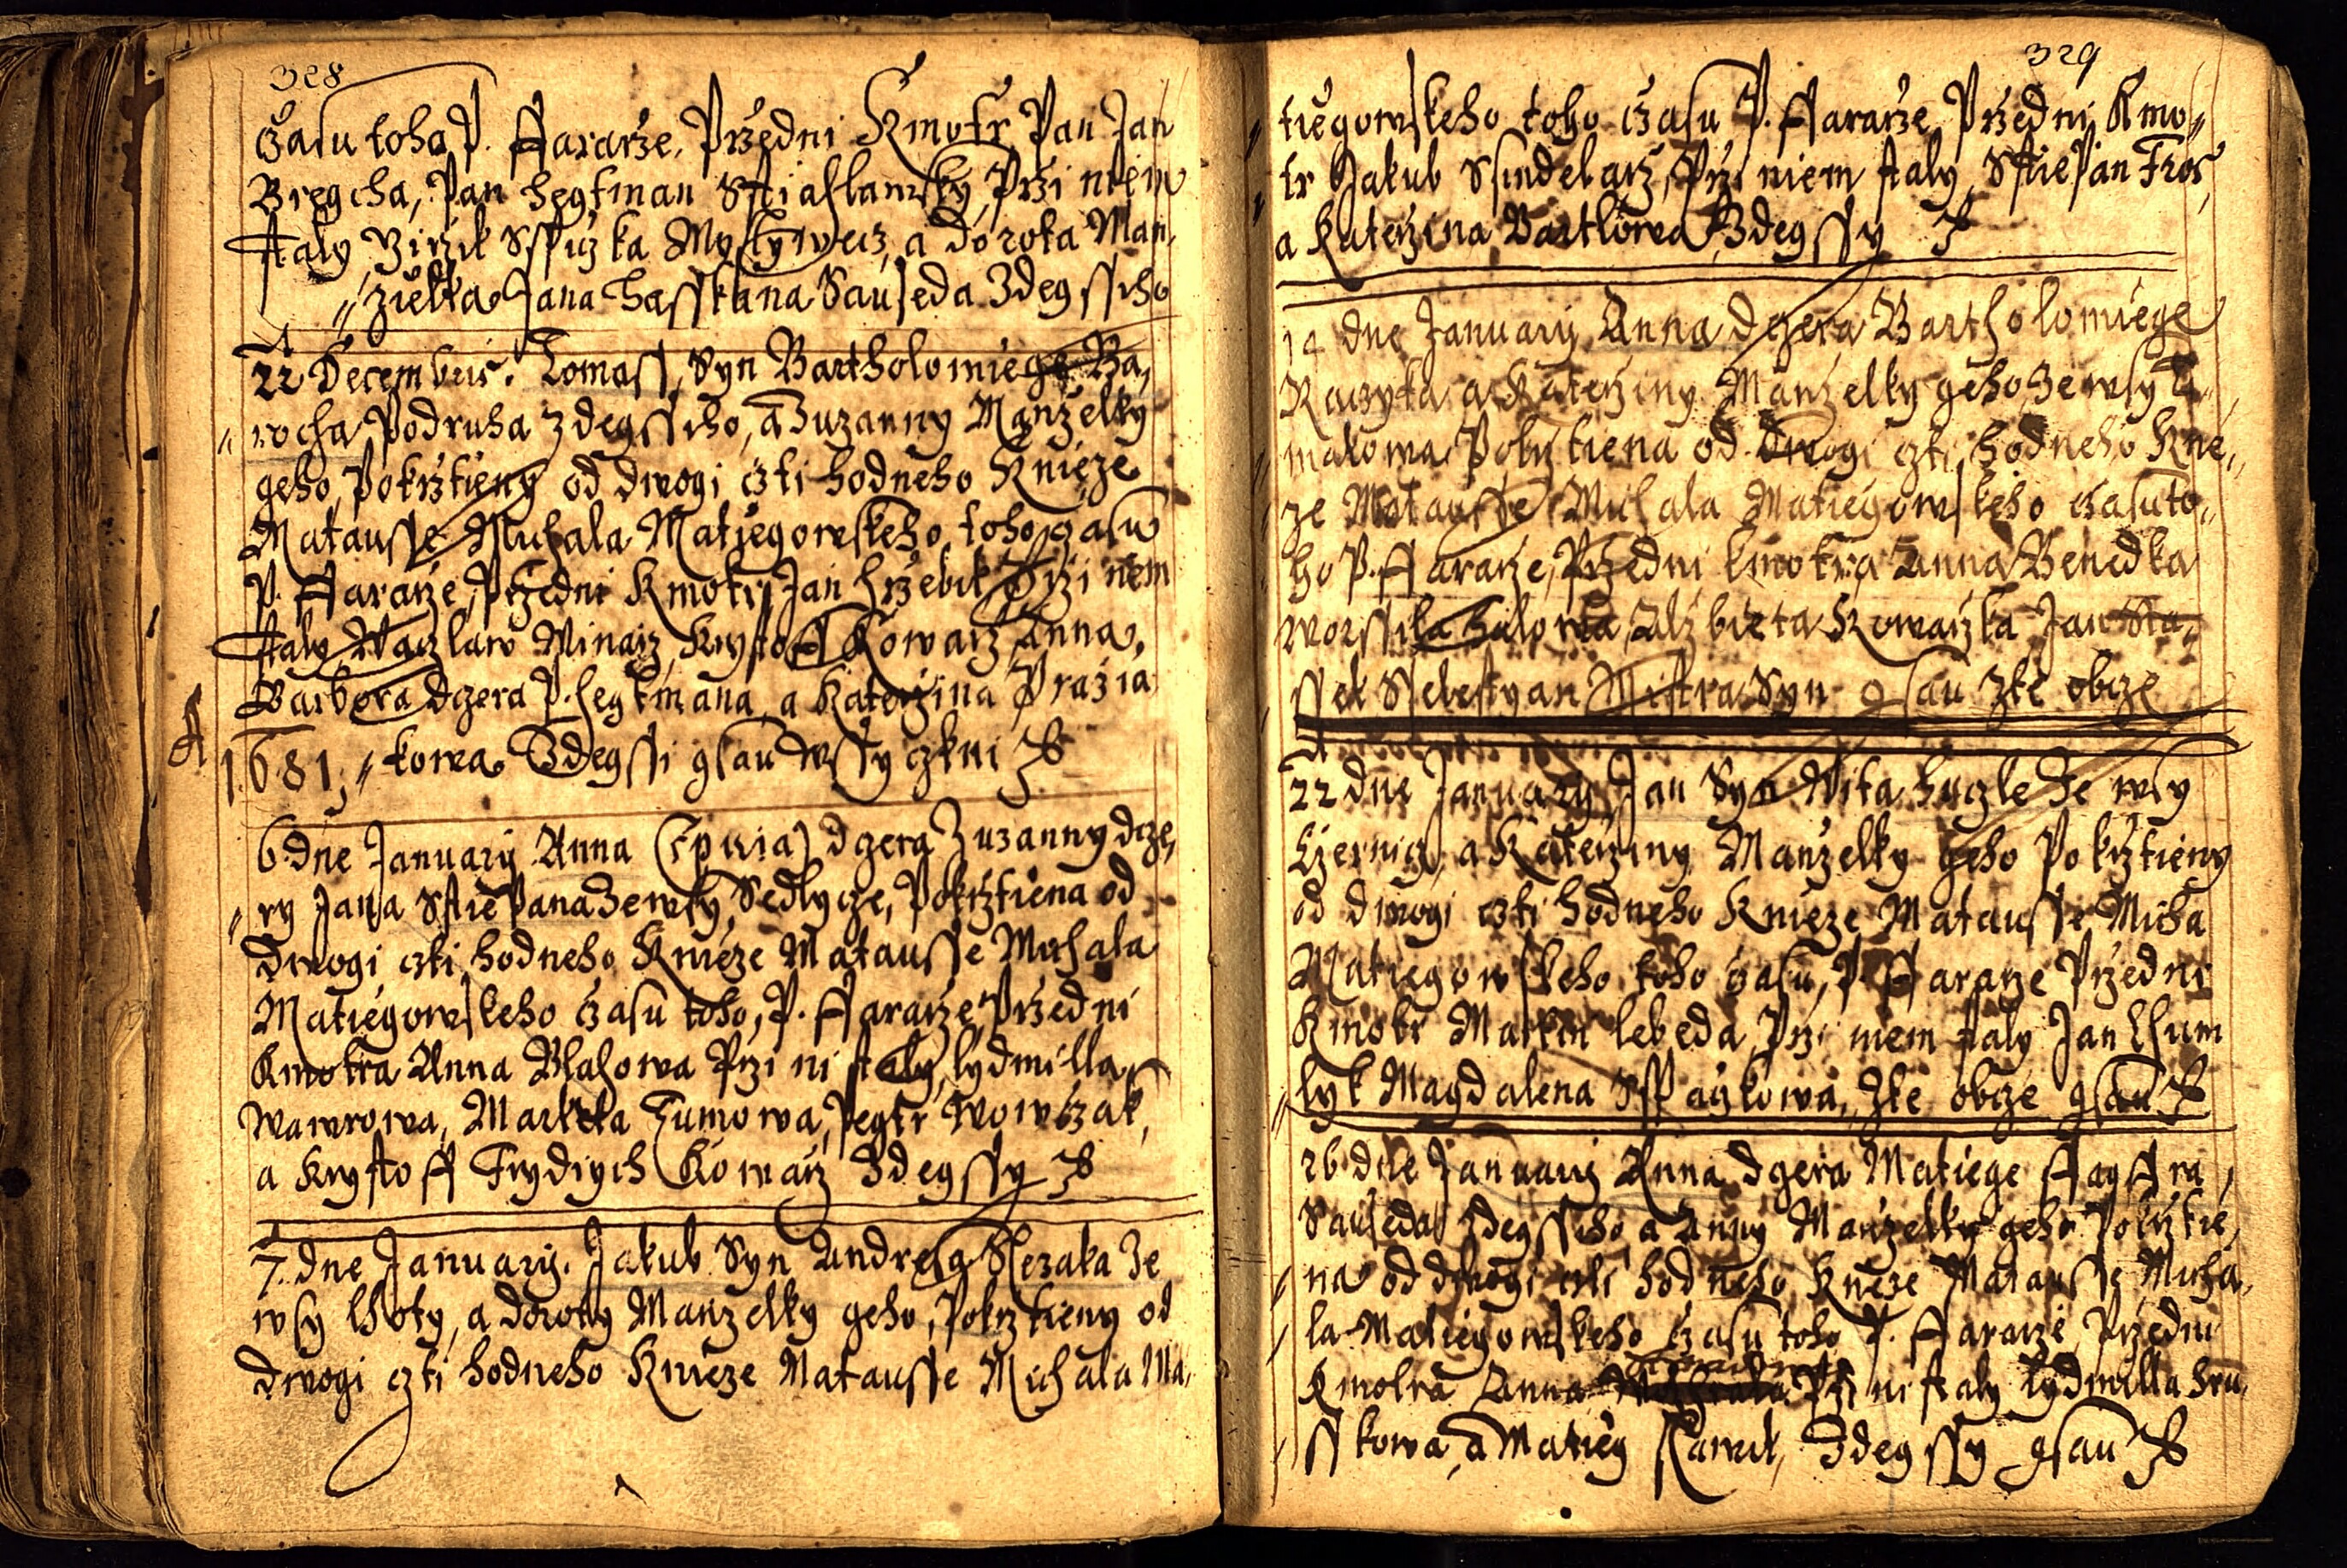 328
cźasu toho P. Ffararże, Przędni Kmotr, Pan Jan
Bregcha, Pan hegtman Sstiahlawsky, Przi niem
staly Girzik Sspiczka Myslywecz, a dorota Man,
„zielka Jana hasskana Sauseda Zdegssiho
22 Decembris. Tomass, Syn Bartholomiege Ba,
„rocha Podruha Zdegssiho, a Zuzanny Manżelky
geho, Pokrżtieny od dwogi cżti hodneho Knieze
Matausse Michala Matiegowskeho, toho cżasu
P. Ffararże, Przedni Kmotr, Jan hrżebik Przi nem
staly Waczlaw Minarż, Krystoff Kowarż Anna,
Barbora dczera P. hegtmana, a Katerżina Prazia
1681, „kowa Zdegssi gsau wssyczkni
6 dne January Anna (spuria) dczera Zuzanny dcze,
„ry Jana Sstiepana Ze wsy Sedlycze, Pokrżtiena od
dwogi czti hodneho Knieze Matausse Michala
Matiegowskeho cżasu toho, P. Ffararże, Przedni
Kmotra Anna Blahowa Przi ni staly, lydmilla
Wawrowa, Marketa Tumowa, Pegtr Wowcżak,
a Krystoff Frydrych Kowarż Zdegssy
7. dne January. Jakub Syn Andrega Slezaka Ze
wsy lhoty, a doroty Manżelky geho, Pokrżtieny od
dwogi czti hodneho Knieze Matausse Michala Ma,
329
tiegowskeho toho cżasu P. Ffararże Przedni Kmo„
tr Jakub Ssindelarż, Przi niem staly, Sstiepan Fros,
a Katerżina Bartlowa, Zdegssy
14 dne January Anna dczera Bartholomiege
a Katerżiny Manżelky geho, Ze wsy
makowa, Pokrżtiena od Dwogi czti hodneho Kne„
ze Matausse Michala Matiegowskeho cżasu to„
ho P. Ffararże, Przedni kmotra Anna Benedka
worssila halowa, Alżbieta Kowarżka Jan
ssek Ssebestyan Mistra Syn gsau Zte obcze
22 dne January, Jan Syn Wita huczle Ze wsy
Czernicz, a Katerżiny Manżelky geho Pokrżtieny
od dwogi czti hodneho Knieze Matausse Micha
Matiegowskeho toho cżasu, P. Ffararże Przedni
Kmotr Martin lebeda, Przi niem staly Jan Chum
lyk Magdalena Zte obcze gsau
26 dne January Anna dczera Matiege
Sauseda Zdegssiho a Anny Manżelky geho Pokrżtie,
na od dwogi czti hodneho Kneze Matausse Micha,
la Matiegowskeho cżasu toho P. Ffararże, Przedni
Kmotra Anna Przi ni staly lydmilla hru,
sskowa, a Matieg Slawik, Zdegssy gsau